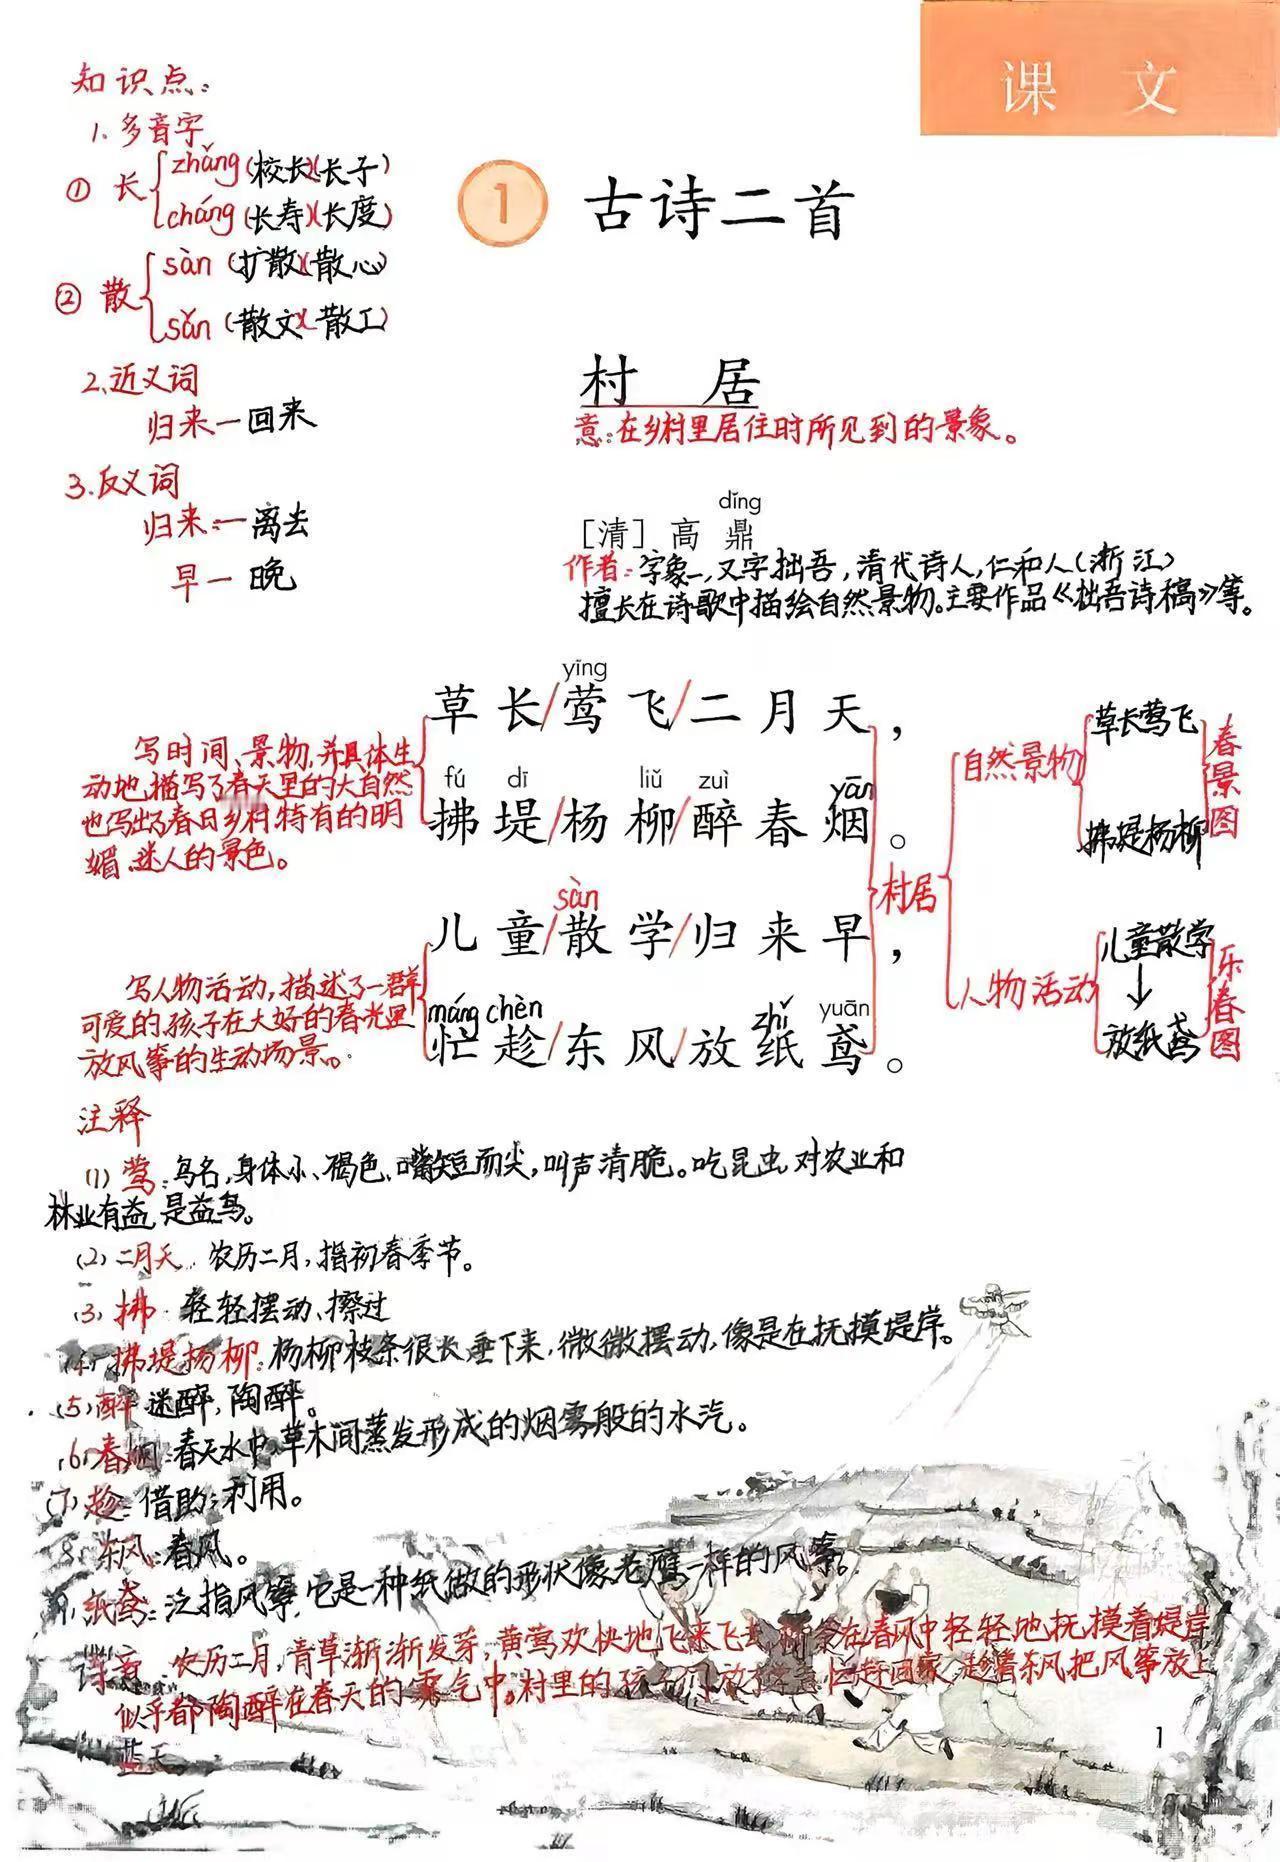 课 文
知识点:
1. 多音字
① 长 zhǎng (校长)(长子)
cháng (长寿)(长度)
② 散 sàn (扩散)(散心)
sǎn (散文)(散工)
2. 近义词
归来—回来
3. 反义词
归来:—离去
早—晚
1 古诗二首
村 居
意:在乡村里居住时所见到的景象。
dǐng
[清] 高 鼎
作者:字象一,又字拙吾,清代诗人,仁和人(浙江)
擅长在诗歌中描绘自然景物。主要作品《拙吾诗稿》等。
yīng
草长/莺飞/二月天,
fú dī liǔ zuì yān
拂堤/杨柳/醉春烟。
sàn
儿童/散学/归来早,
máng chèn zhǐ yuān
忙趁/东风/放纸鸢。
写时间、景物,并具体生
动地描写了春天里的大自然
也写出了春日乡村特有的明
媚、迷人的景色。
写人物活动,描述了一群
可爱的孩子在大好的春光里
放风筝的生动场景。
村居
自然景物
草长莺飞
拂堤杨柳
春景图
人物活动
儿童散学
↓
放纸鸢
乐春图
注释
(1) 莺:鸟名,身体小、褐色、嘴短而尖,叫声清脆。吃昆虫,对农业和
林业有益,是益鸟。
(2) 二月天 农历二月,指初春季节。
(3) 拂 轻轻摆动、擦过
(4) 拂堤杨柳:杨柳枝条很长垂下来,微微摆动,像是在抚摸堤岸。
(5) 醉 迷醉,陶醉。
(6) 春烟:春天水中,草木间蒸发形成的烟雾般的水汽。
(7) 趁:借助;利用。
8 东风:春风。
纸鸢:泛指风筝,它是一种纸做的形状像老鹰一样的风筝。
诗意 农历二月,青草渐渐发芽,黄莺欢快地飞来飞去,在春风中轻轻地抚摸着堤岸,
似乎都陶醉在春天的雾气中。村里的孩子们放忙赶回家,趁着东风把风筝放上
蓝天。
1